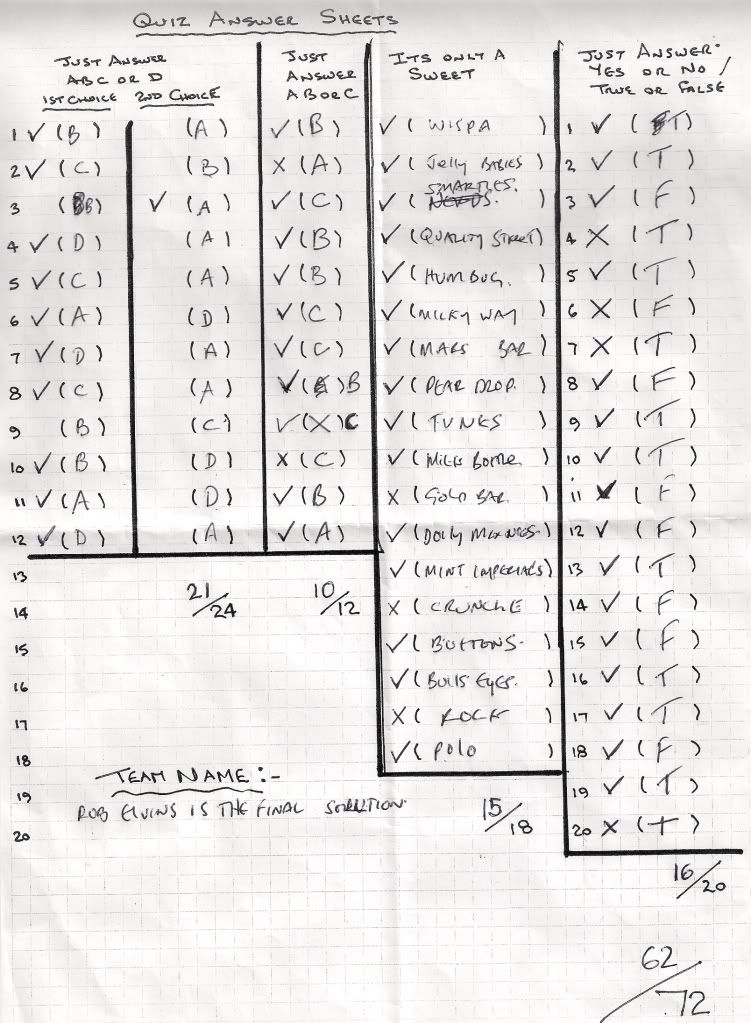 QUIZ ANSWER SHEETS
JUST ANSWER
A B C OR D
1ST CHOICE 2ND CHOICE
JUST
ANSWER
A B OR C
ITS ONLY A
SWEET
JUST ANSWER-
YES OR NO /
TRUE OR FALSE
1 ✓ (B) (A) ✓ (B) ✓ (WISPA) 1 ✓ (T)
2 ✓ (C) (B) X (A) ✓ (Jelly BABIES) 2 ✓ (T)
SMARTIES.
3 (B) ✓ (A) ✓ (C) ✓ (NERDS.) 3 ✓ (F)
4 ✓ (D) (A) ✓ (B) ✓ (QUALITY STREET) 4 X (T)
5 ✓ (C) (A) ✓ (B) ✓ (HUMBUG.) 5 ✓ (T)
6 ✓ (A) (D) ✓ (C) ✓ (MILKY WAY) 6 X (F)
7 ✓ (D) (A) ✓ (C) ✓ (MARS BAR) 7 X (T)
8 ✓ (C) (A) ✓ ( ) B ✓ (PEAR DROP.) 8 ✓ (F)
9 (B) (C) ✓ (X) C ✓ (TUNES) 9 ✓ (T)
10 ✓ (B) (D) X (C) ✓ (MILK BOTTLE) 10 ✓ (T)
11 ✓ (A) (D) ✓ (B) X (GOLD BAR.) 11 ✓ (F)
12 ✓ (D) (A) ✓ (A) ✓ (DOLLY MIXTURES) 12 ✓ (F)
13 ✓ (MINT IMPERIALS) 13 ✓ (T)
14 21/24 10/12 X (CRUNCHIE) 14 ✓ (F)
15 ✓ (BUTTONS-) 15 ✓ (F)
16 ✓ (BULLS EYES.) 16 ✓ (T)
17 X (ROCK) 17 ✓ (T)
18 ✓ (POLO) 18 ✓ (F)
TEAM NAME :-
19 19 ✓ (T)
ROB ELVINS IS THE FINAL SOLUTION.
15/18
20 20 X (T)
16/20
62/72